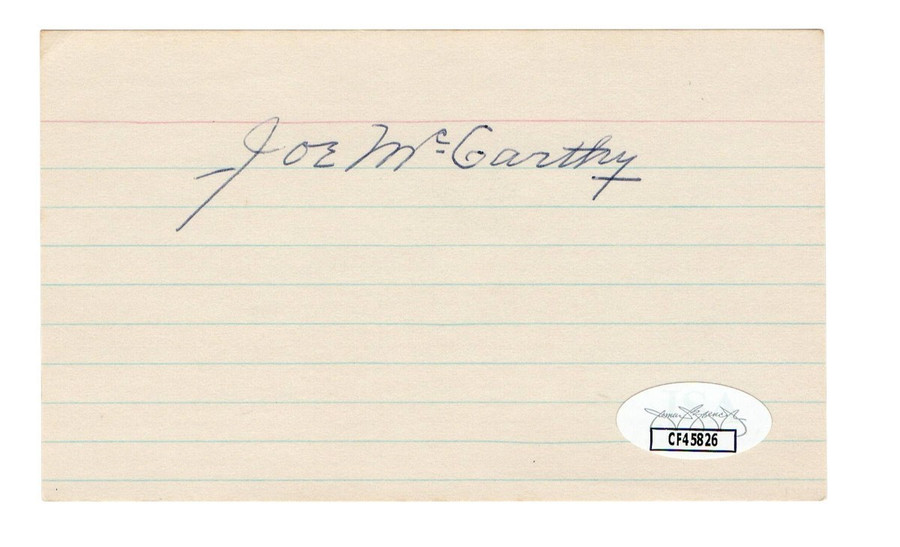 Joe McCarthy
CF45826